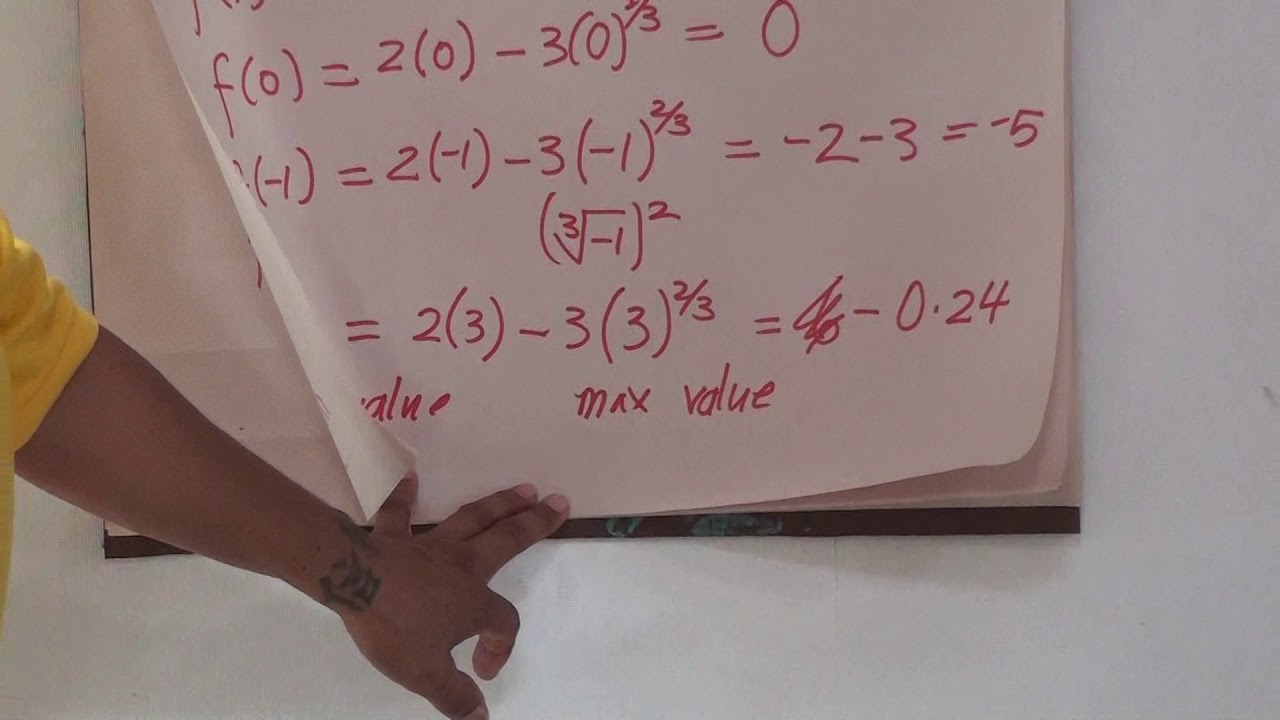 f(0) = 2(0) - 3(0)^2/3 = 0
(-1) = 2(-1) - 3(-1)^2/3 = -2 - 3 = -5
(∛-1)^2
= 2(3) - 3(3)^2/3 = - 0.24
max value